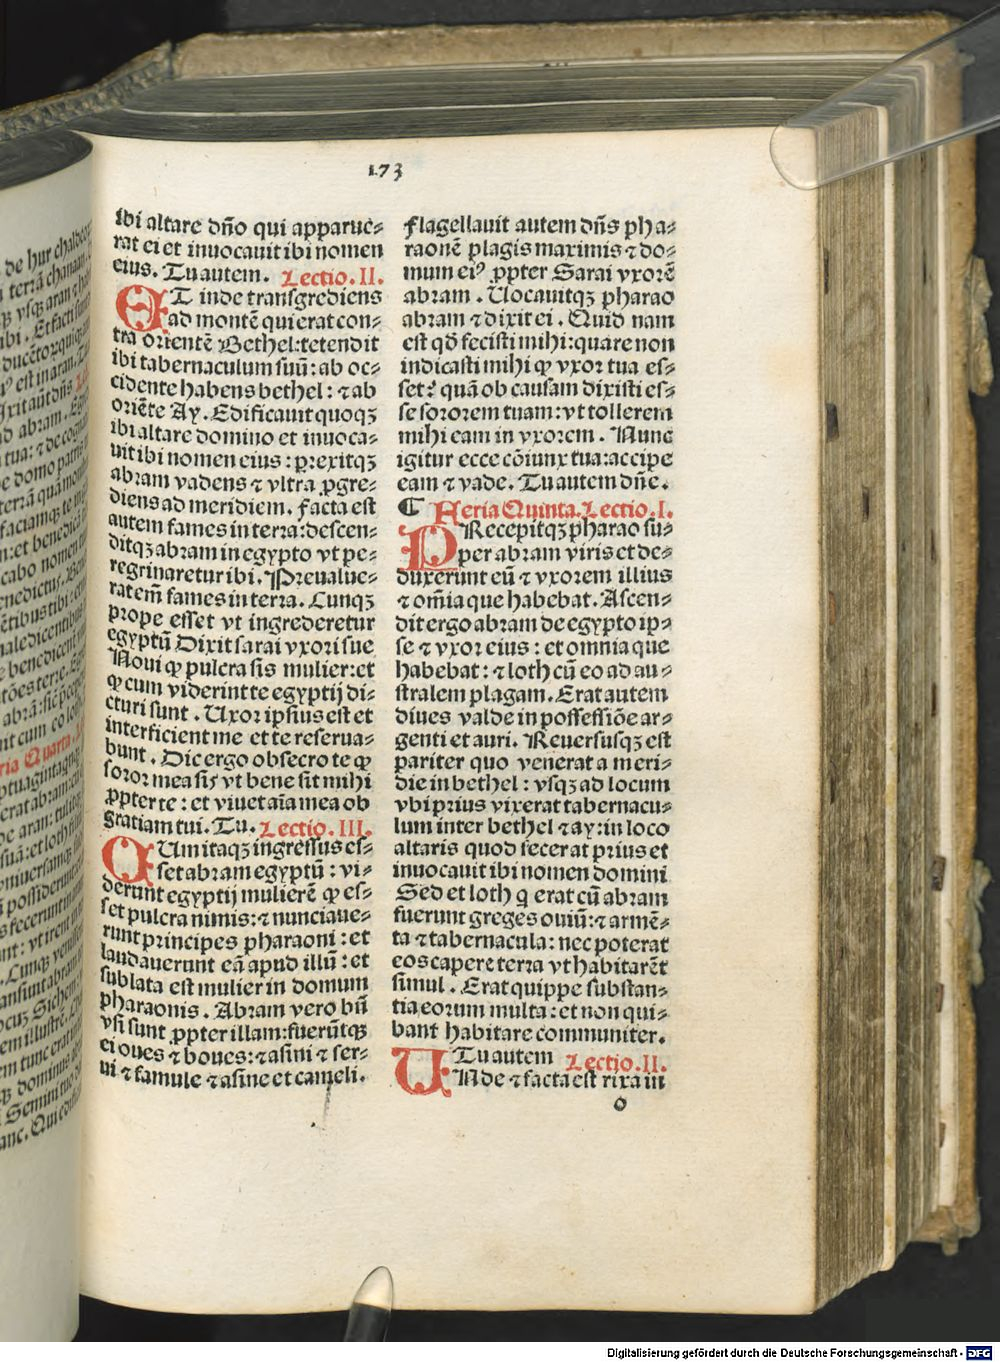 173
ibi altare dño qui apparue⸗
rat ei et inuocauit ibi nomen
eius. Tu autem. Lectio. II.
ET inde transgrediens
ad montē qui erat con⸗
tra orientē Bethel: tetendit
ibi tabernaculum suū: ab oc⸗
cidente habens bethel: ⁊ ab
oriēte Ay. Edificauit quoqꝫ
ibi altare domino et inuoca⸗
uit ibi nomen eius: prexitqꝫ
abram vadens ⁊ vltra ꝓgre⸗
diens ad meridiem. facta est
autem fames in terra: descen⸗
ditqꝫ abram in egypto vt pe⸗
regrinaretur ibi. Preualue⸗
rat em̄ fames in terra. Cunqꝫ
prope esset vt ingrederetur
egyptū Dixit sarai vxori sue
Noui ꝙ pulcra sis mulier: et
ꝙ cum viderint te egyptij di⸗
cturi sunt. Uxor ipsius est et
interficient me et te reserua⸗
bunt. Dic ergo obsecro te ꝙ
soror mea sis vt bene sit mihi
ꝓpter te: et viuet aīa mea ob
gratiam tui. Tu. Lectio. III.
CUm itaqꝫ ingressus es⸗
set abram egyptū: vi⸗
derunt egyptij mulierē ꝙ es⸗
set pulcra nimis: ⁊ nunciaue⸗
runt principes pharaoni: et
laudauerunt eā apud illū: et
sublata est mulier in domum
pharaonis. Abram vero bn̄
vsi sunt ꝓpter illam: fuerūtqꝫ
ei oues ⁊ boues: ⁊ asini ⁊ ser⸗
ui ⁊ famule ⁊ asine et cameli.
flagellauit autem dñs pha⸗
raonē plagis maximis ⁊ do⸗
mum eiꝰ ꝓpter Sarai vxorē
abram. Uocauitqꝫ pharao
abram ⁊ dixit ei. Quid nam
est qđ fecisti mihi: quare non
indicasti mihi ꝙ vxor tua es⸗
set? quā ob causam dixisti es⸗
se sororem tuam: vt tollerem
mihi eam in vxorem. Nunc
igitur ecce cōiunx tua: accipe
eam ⁊ vade. Tu autem dñe.
¶ Feria Quinta. Lectio. I.
PRecepitqꝫ pharao su⸗
per abram viris et de⸗
duxerunt eū ⁊ vxorem illius
⁊ om̄ia que habebat. Ascen⸗
dit ergo abram de egypto ip⸗
se ⁊ vxor eius: et omnia que
habebat: ⁊ loth cū eo ad au⸗
stralem plagam. Erat autem
diues valde in possessiōe ar⸗
genti et auri. Reuersusqꝫ est
pariter quo venerat a meri⸗
die in bethel: vsqꝫ ad locum
vbi prius vixerat tabernacu⸗
lum inter bethel ⁊ ay: in loco
altaris quod fecerat prius et
inuocauit ibi nomen domini
Sed et loth q̄ erat cū abram
fuerunt greges ouiū: ⁊ armē⸗
ta ⁊ tabernacula: nec poterat
eos capere terra vt habitarēt
simul. Erat quippe substan⸗
tia eorum multa: et non qui⸗
bant habitare communiter.
Tu autem Lectio. II.
UNde ⁊ facta est rixa in
o
Digitalisierung gefördert durch die Deutsche Forschungsgemeinschaft - DFG